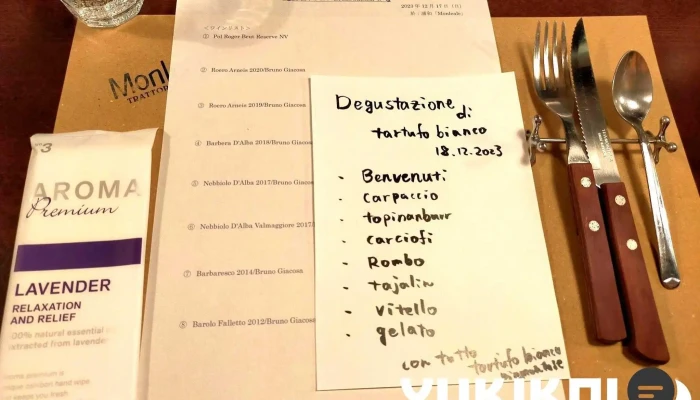 2023年12月17日（日）
<ワインリスト>
① Pol Roger Brut Reserve NV
② Roero Arneis 2020/Bruno Giacosa
③ Roero Arneis 2019/Bruno Giacosa
④ Barbera D'Alba 2018/Bruno Giacosa
⑤ Nebbiolo D'Alba 2017/Bruno Giacosa
⑥ Nebbiolo D'Alba Valmaggiore 2017
⑦ Barbaresco 2014/Bruno Giacosa
⑧ Barolo Falletto 2012/Bruno Giacosa
TRATTOR
AROMA
Premium
LAVENDER
RELAXATION
AND RELIEF
100% natural essential
extracted from lavender
Degustazione
di
tartufo bianco
18.12.2023
- Benvenuti
- Carpaccio
- topinanburr
- carciofi
- Rombo
- tajalin
- vitello
- gelato
con tutto
tartufo bianco